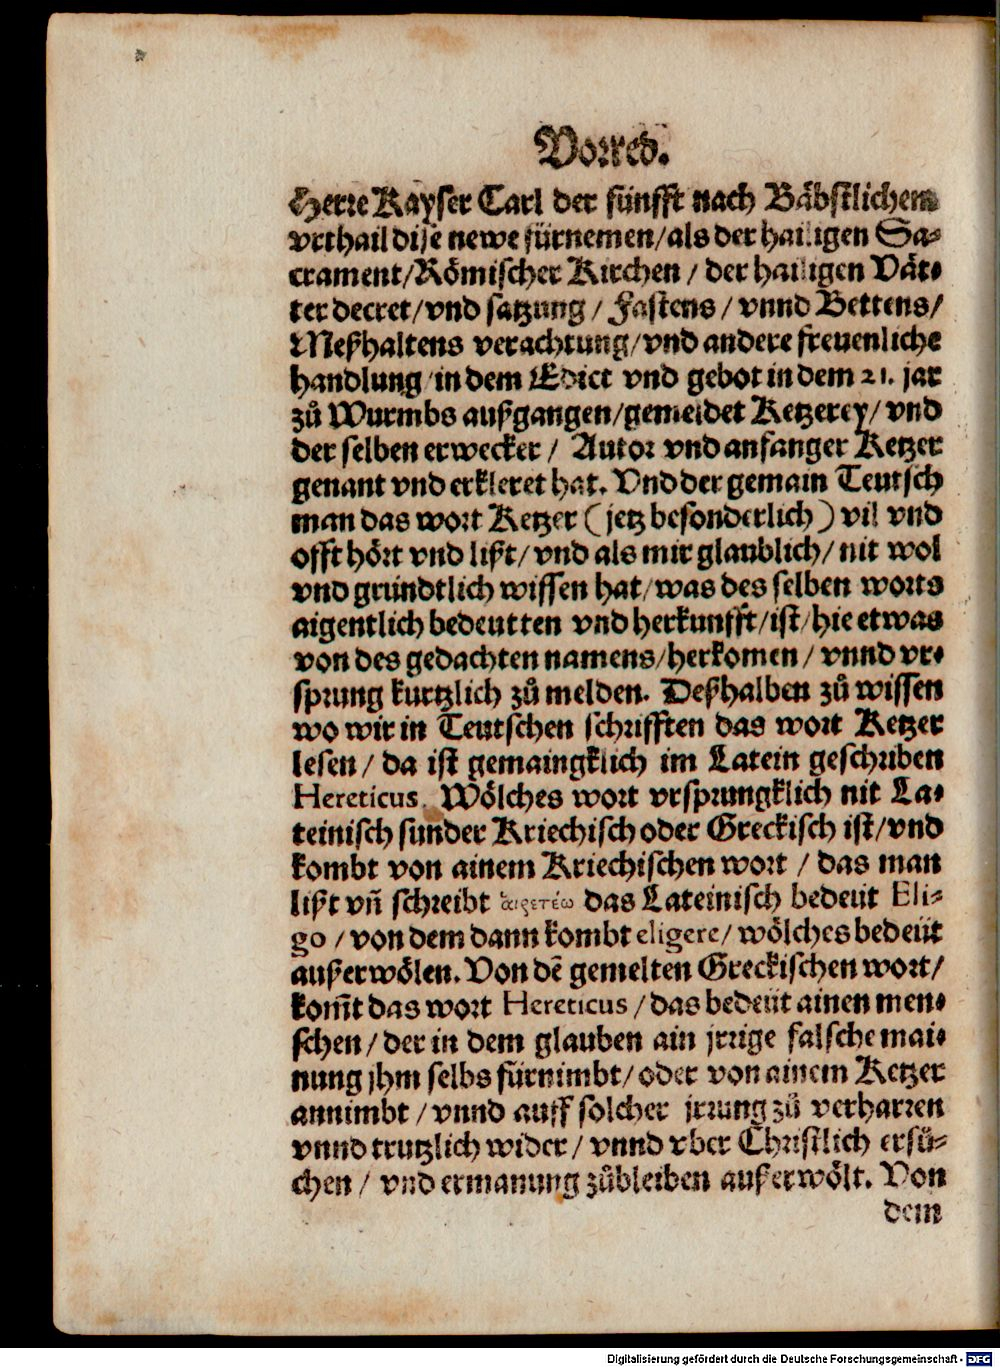 Vorred.
Herre Kayser Carl der fünfft nach Bäbstlichem
vrthail dise newe fürnemen/als der hailigen Sa⸗
crament/Römischer Kirchen / der hailigen Vät⸗
ter decret/vnd satzung / Fastens / vnnd Bettens/
Meßhaltens verachtung/vnd andere freuenliche
handlung/in dem Edict vnd gebot in dem 21. jar
zů Wurmbs außgangen/gemeldet Ketzerey/ vnd
der selben erwecker / Autor vnd anfanger Ketzer
genant vnd erkleret hat. Vnd der gemain Teutsch
man das wort Ketzer (jetz besonderlich) vil vnd
offt hört vnd lißt/ vnd als mir glaublich/ nit wol
vnd gründtlich wissen hat/was des selben worts
aigentlich bedeutten vnd herkunfft/ist/hie etwas
von des gedachten namens/herkomen / vnnd vr⸗
sprung kurtzlich zů melden. Deßhalben zů wissen
wo wir in Teutschen schrifften das wort Ketzer
lesen / da ist gemaingklich im Latein geschriben
Hereticus. Wölches wort vrsprungklich nit La⸗
teinisch sunder Kriechisch oder Greckisch ist/vnd
kombt von ainem Kriechischen wort / das man
lißt vn̄ schreibt ἁιρετέω das Lateinisch bedeüt Eli⸗
go / von dem dann kombt eligere/ wölches bedeüt
außerwölen. Von dē gemelten Greckischen wort/
kom̄t das wort Hereticus / das bedeüt ainen men⸗
schen / der in dem glauben ain jrrige falsche mai⸗
nung jhm selbs fürnimbt/ oder von ainem Ketzer
annimbt / vnnd auff solcher jrrung zů verharren
vnnd trutzlich wider / vnnd vber Christlich ersů⸗
chen / vnd ermanung zůbleiben außerwölt. Von
dem
Digitalisierung gefördert durch die Deutsche Forschungsgemeinschaft - DFG